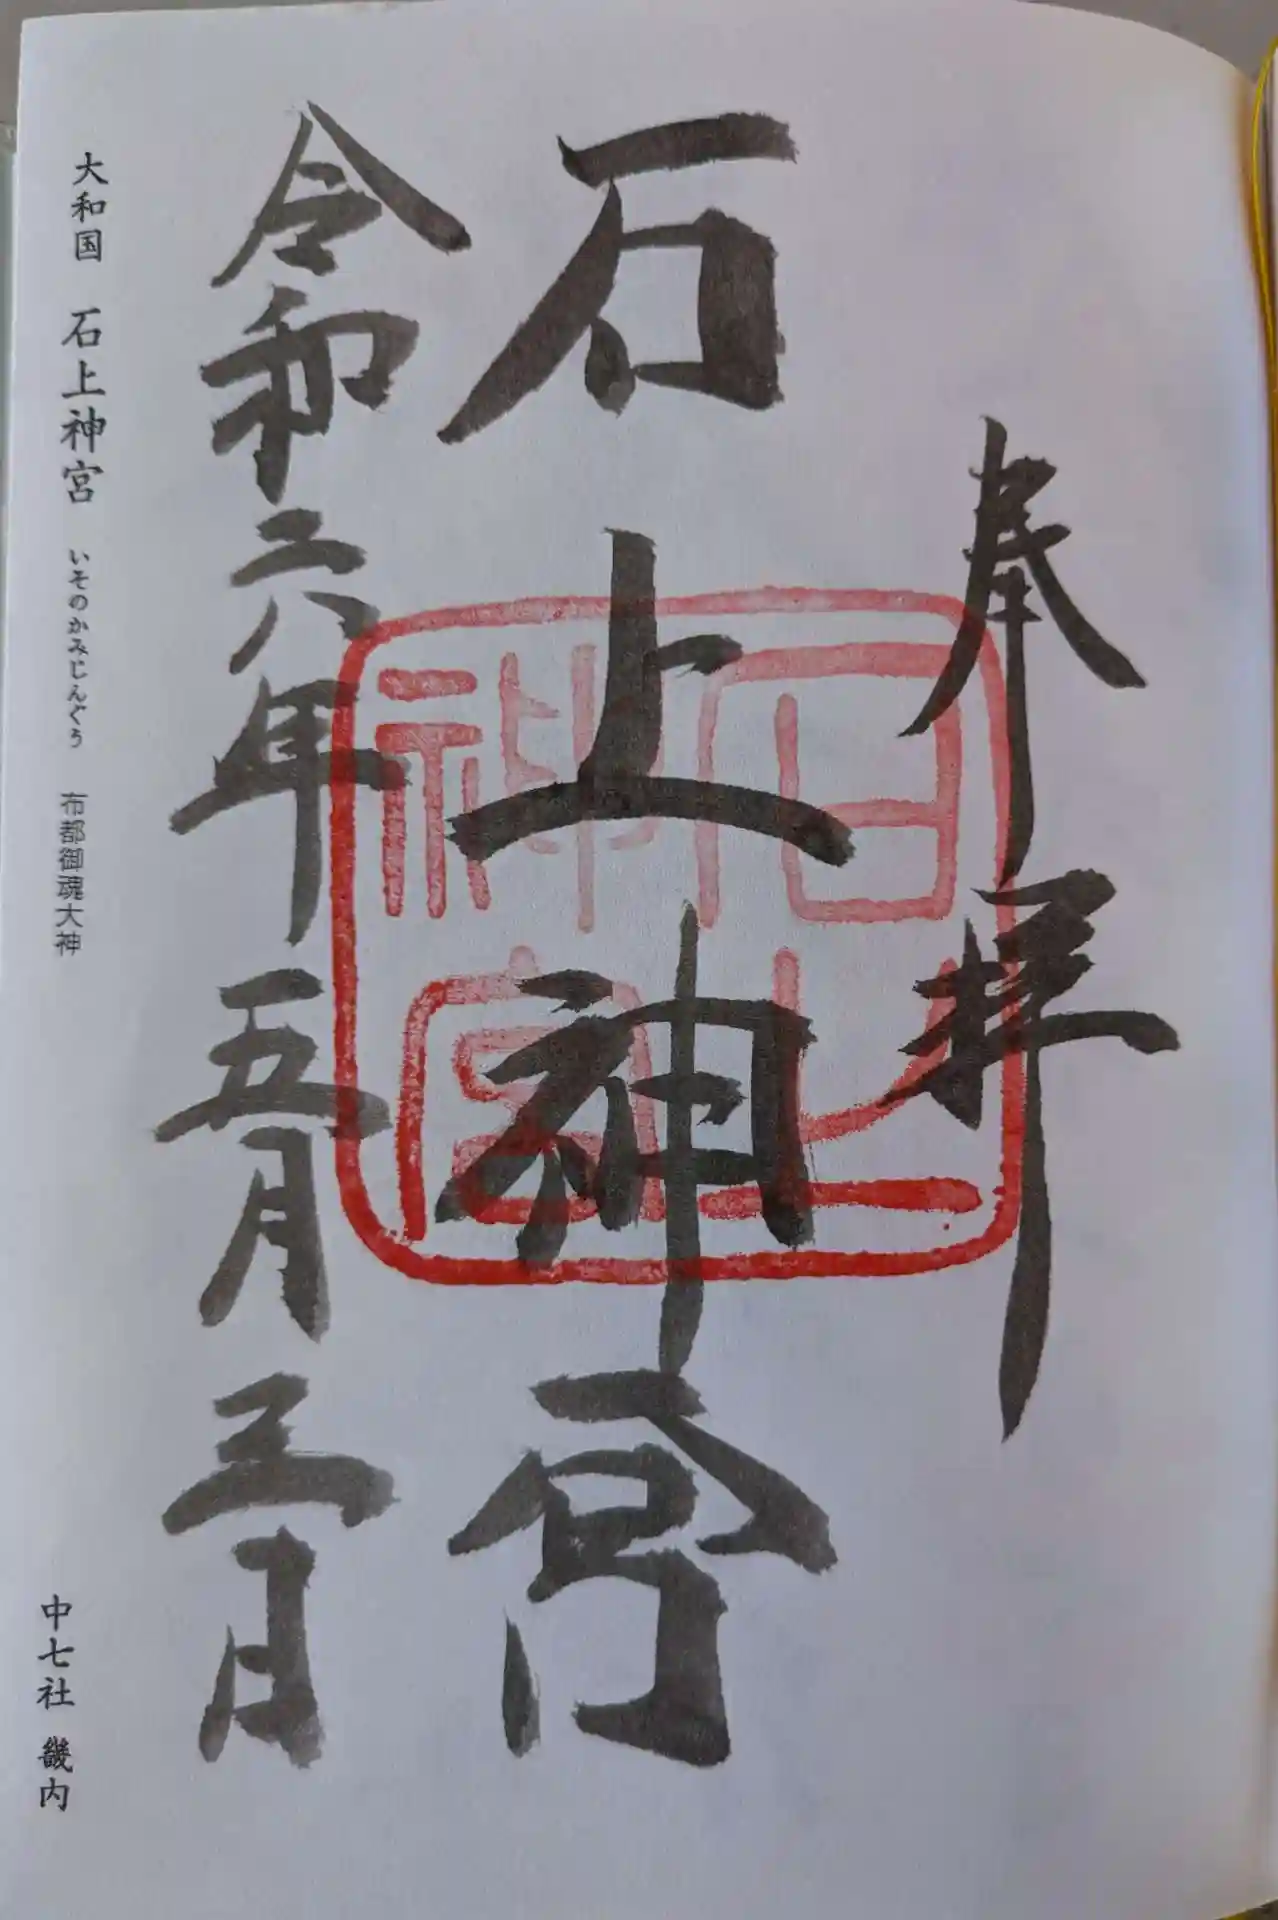 奉拝
石上神宮
石上
神宮
令和六年五月三日
大和国 石上神宮 いそのかみじんぐう 布都御魂大神
中七社 畿内